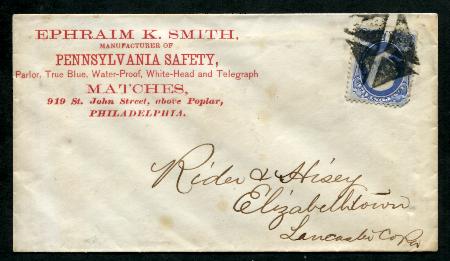 EPHRAIM K. SMITH,
MANUFACTURER OF
PENNSYLVANIA SAFETY,
Parlor, True Blue, Water-Proof, White-Head and Telegraph
MATCHES,
919 St. John Street, above Poplar,
PHILADELPHIA.
Rider & Hisey
Elizabethtown
Lancaster Co Pa